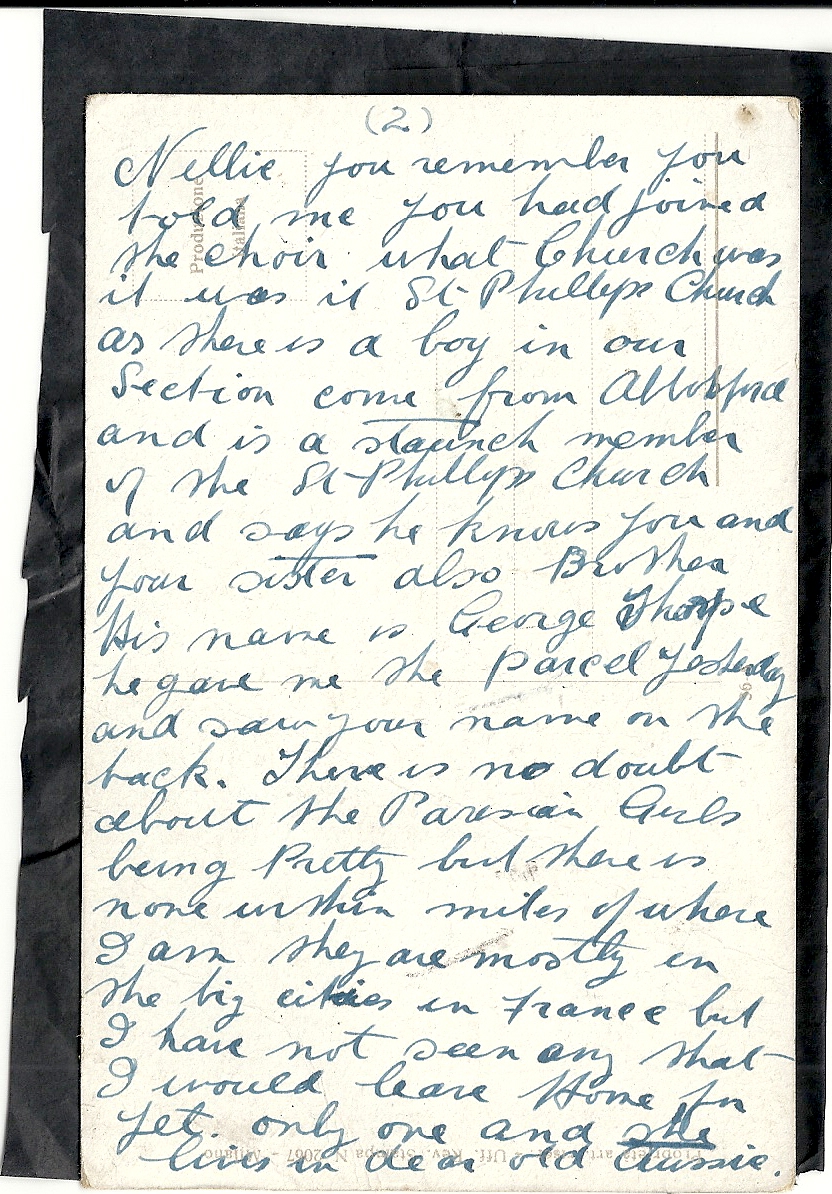 (2)
Nellie you remember you
told me you had joined
the choir what Church was
it was it St Phillips Church
as there is a boy in our
Section come from Abbotsford
and is a staunch member
of the St Phillips Church
and says he knows you and
your sister also Brother
His name is George Thorpe
he gave me the parcel yesterday
and saw your name on the
back. There is no doubt
about the Paresian Girls
being Pretty but there is
none within miles of where
I am they are mostly in
the big cities in France but
I have not seen any that
I would leave Home for
yet. only one and she
lives in dear old Aussie.
Produzione
Italiana
Proprietà artist. - Uff. Rev. Stampa N. 2067 - Milano